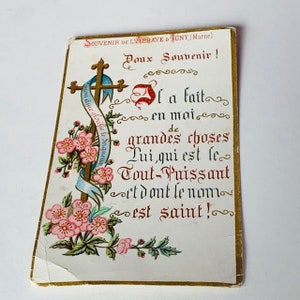 SOUVENIR DE L'ABBAYE D'IGNY (Marne)
Doux Souvenir!
Il a fait
en moi
de
grandes choses
Lui, qui est le
Tout-Puissant
et dont le nom
est saint!